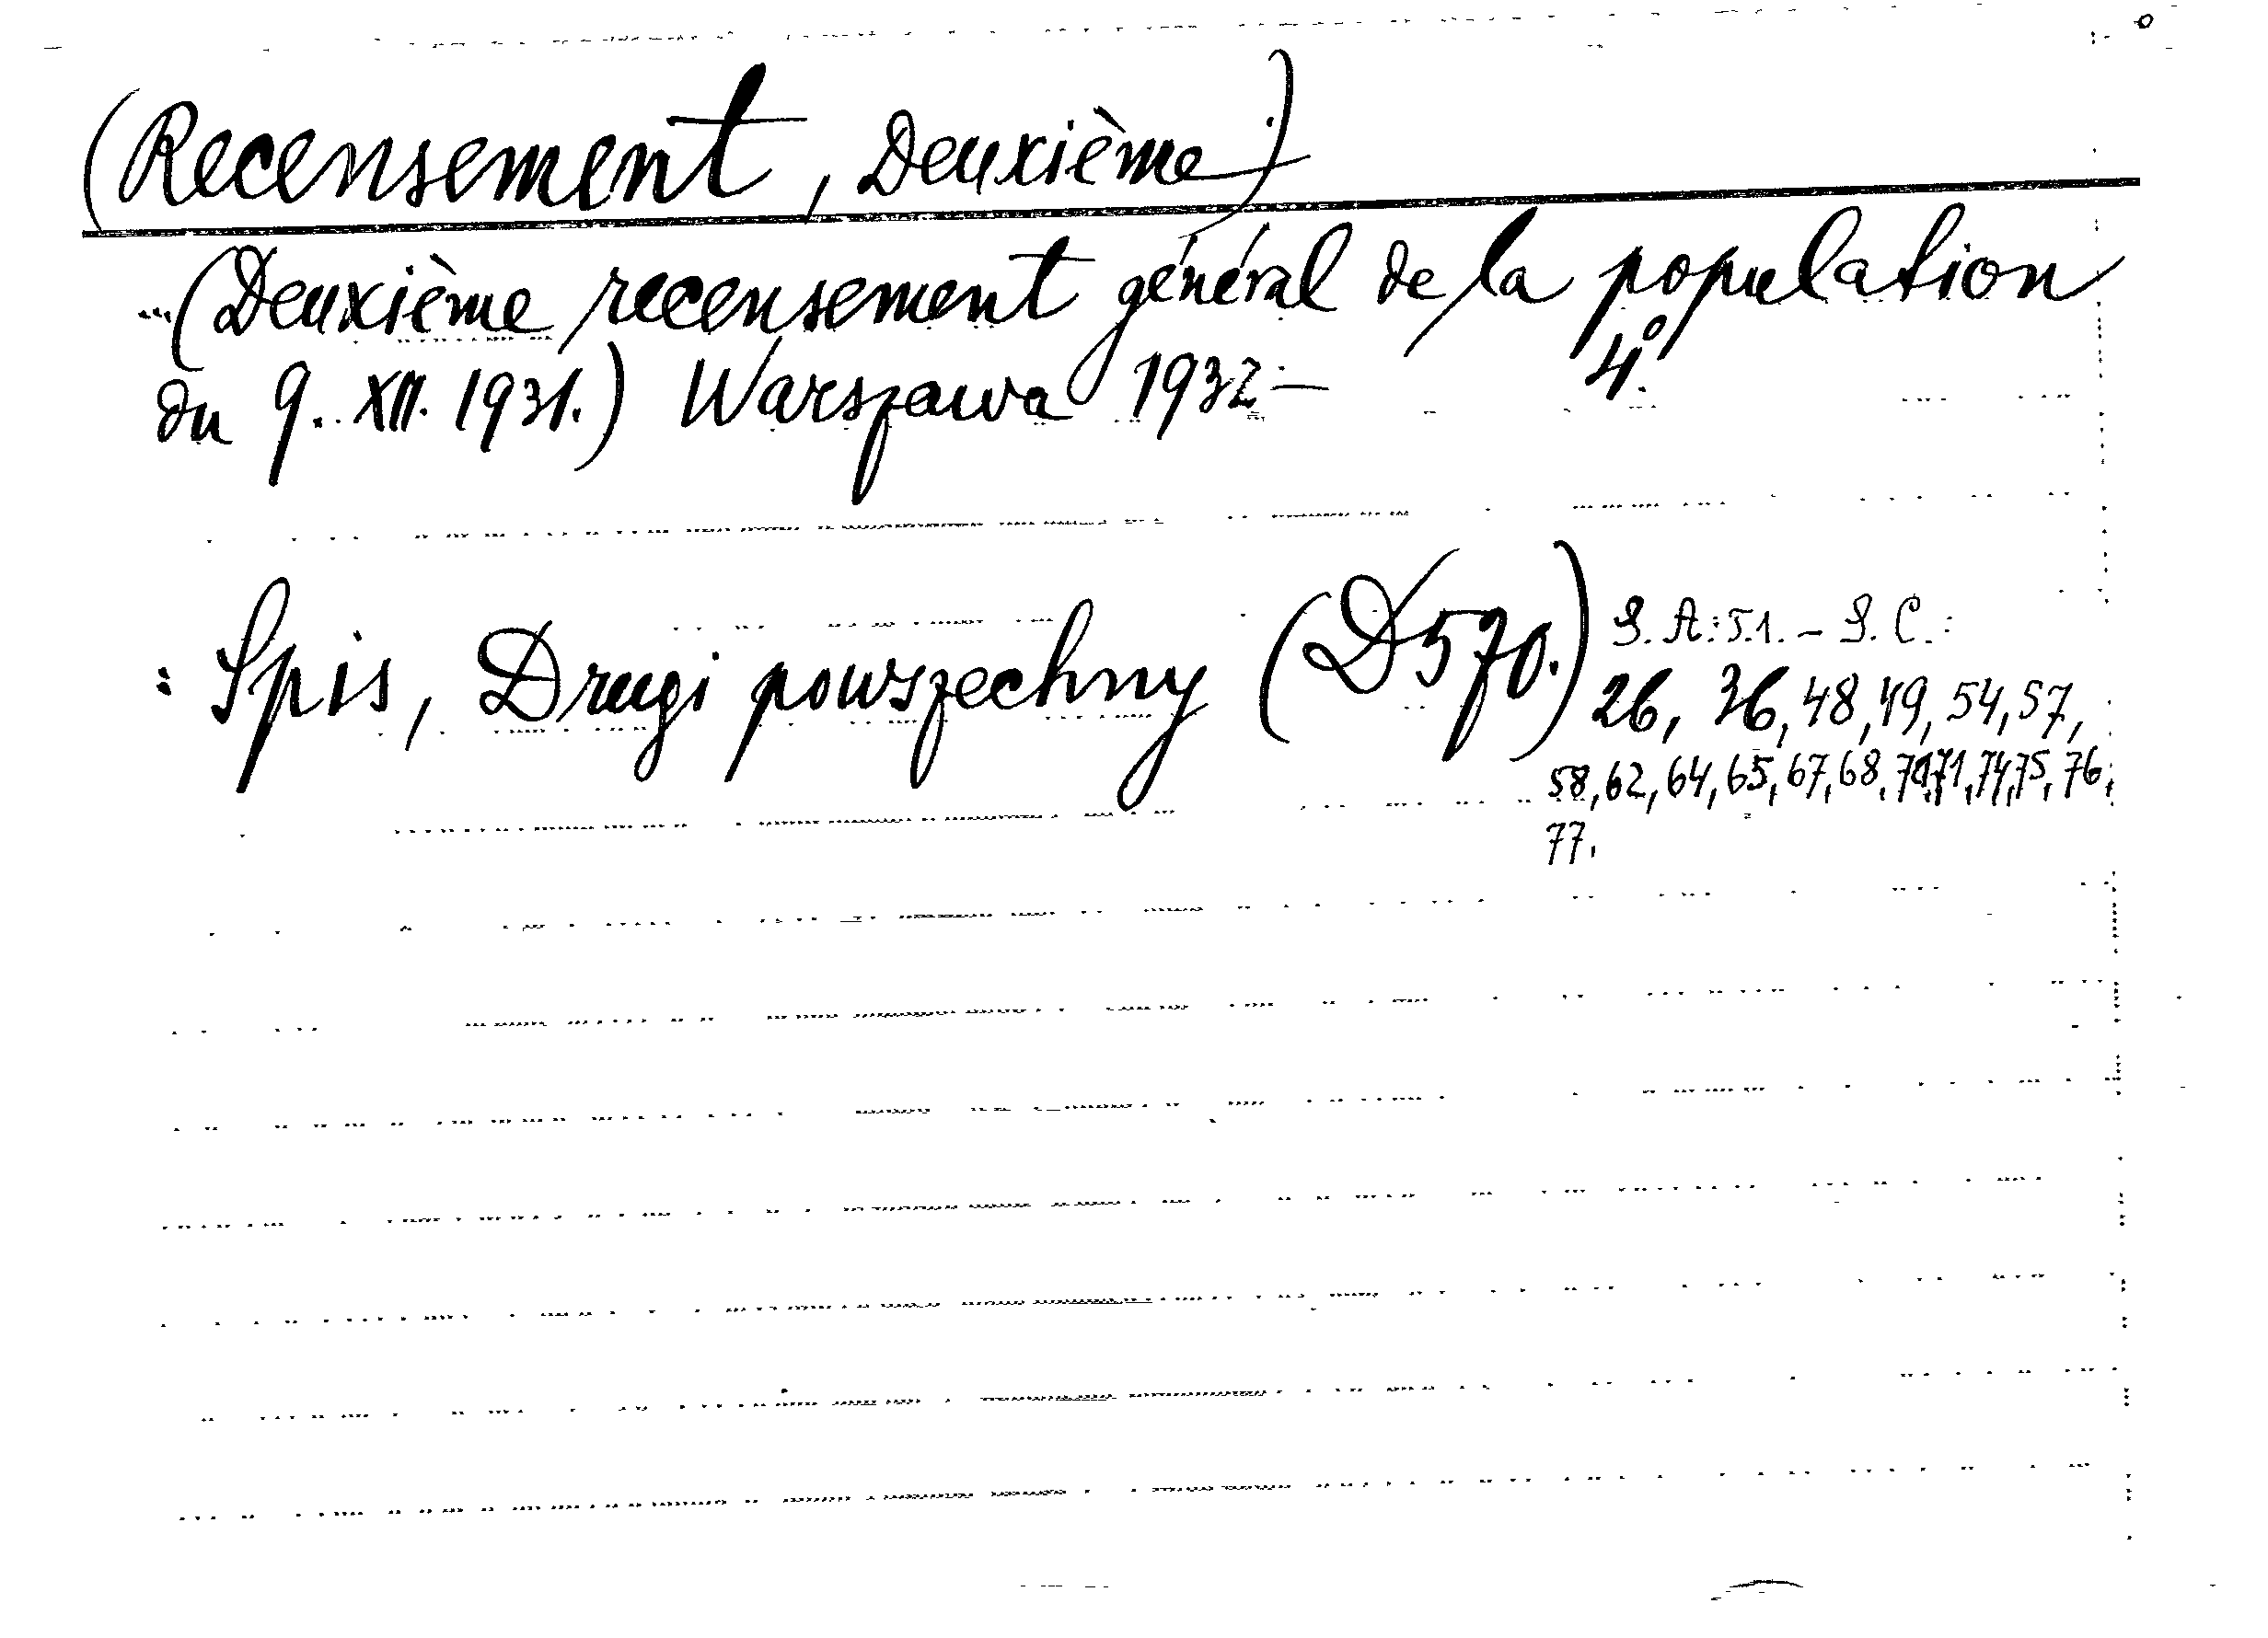 (Recensement, Deuxième)
...(Deuxième recensement général de la population
du 9. XII. 1931.) Warszawa 1932- 4°.
: Spis, Drugi powszechny (D570.) S. A: 51. - S. C.:
26, 36, 48, 49, 54, 57,
58, 62, 64, 65, 67, 68, 70, 71, 74, 75, 76,
77.